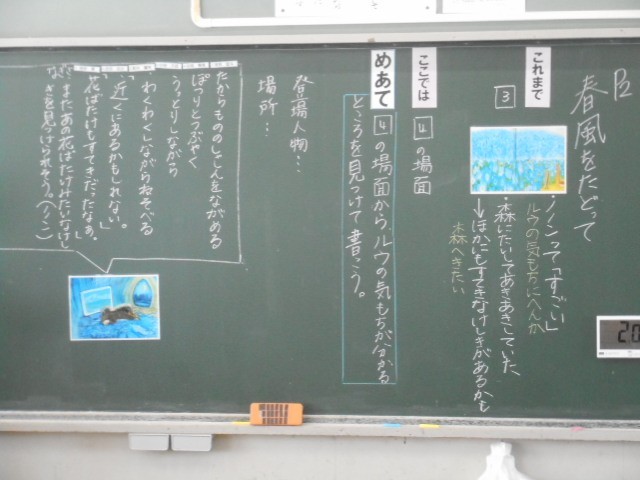 P2
春風をたどって
これまで
3
・ノンって「すごい」
ルウの気もちにへんか
・森にたいしてあきあきしていた
→ほかにもすてきなけしきがあるかも
森へ行きたい
ここでは
4の場面
めあて
4の場面から、ルウの気もちが分かる
ところを見つけて書こう。
登場人物…
場所…
たからもののしゃしんをながめる
ぽつりとつぶやく
うっとりしながら
・わくわくしながらねそべる
・「近くにあるかもしれない。」
・「花ばたけもすてきだったなあ。」
またあの花ばたけみたいなけし
きを見つけられそう。(ノノコ)
2.0